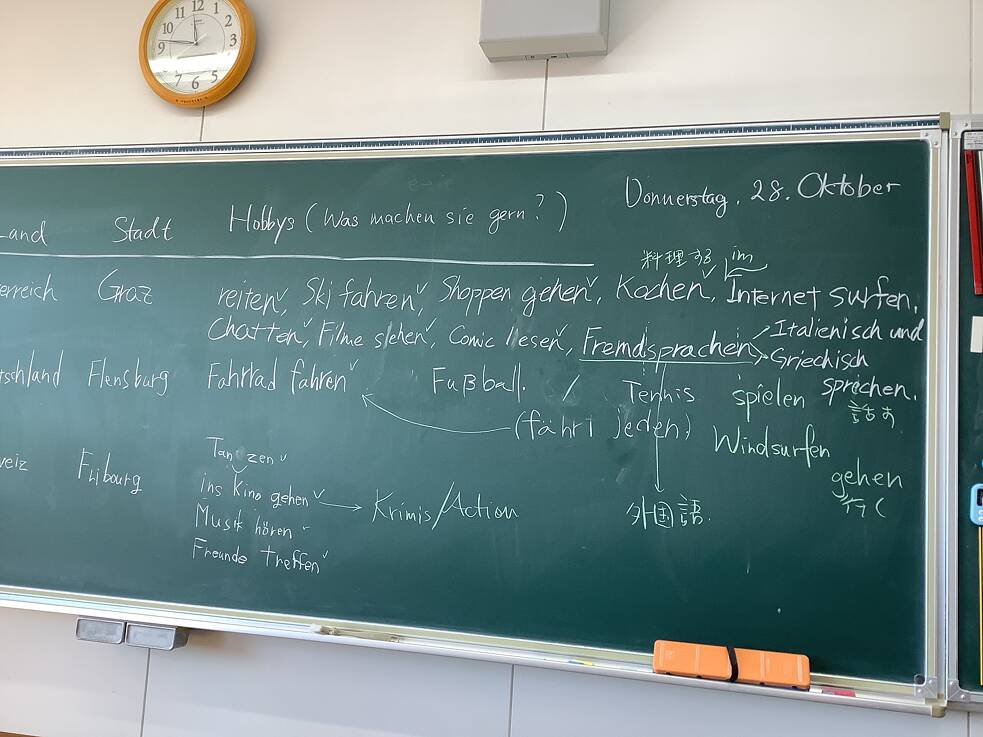 12 1 2 3 5 6 7 9 10 11
Donnerstag, 28. Oktober
Land Stadt Hobbys (Was machen sie gern?)
料理する im
erreich Graz reiten, Ski fahren, Shoppen gehen, Kochen, Internet surfen,
Chatten, Filme sehen, Comic lesen, Fremdsprachen Italienisch und
Griechisch
tschland Flensburg Fahrrad fahren Fußball / Tennis spielen sprechen.
話す
(fährt jeden) Windsurfen
gehen
行く
Tanzen
weiz Fribourg ins Kino gehen → Krimis/Action 外国語
Musik hören
Freunde treffen